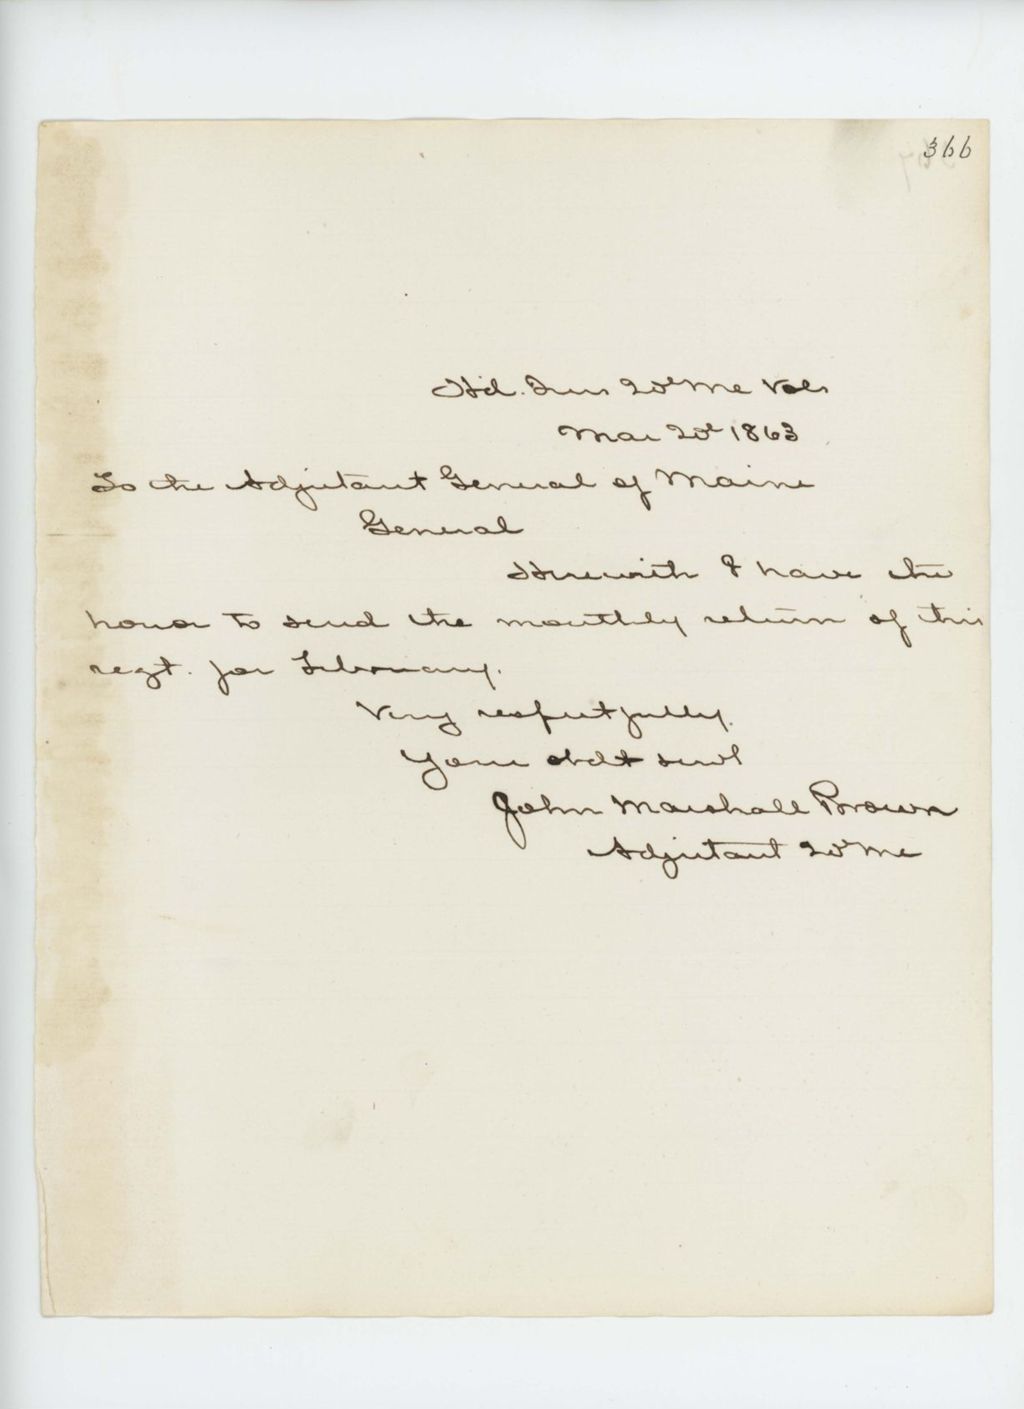 366
Hd. Qurs 20th Me Vols
Mar 20th 1863
To the Adjutant General of Maine
General
Herewith I have the
honor to send the monthly return of this
regt. for February.
Very respectfully.
Your obdt servt
John Marshall Brown
Adjutant 20th Me